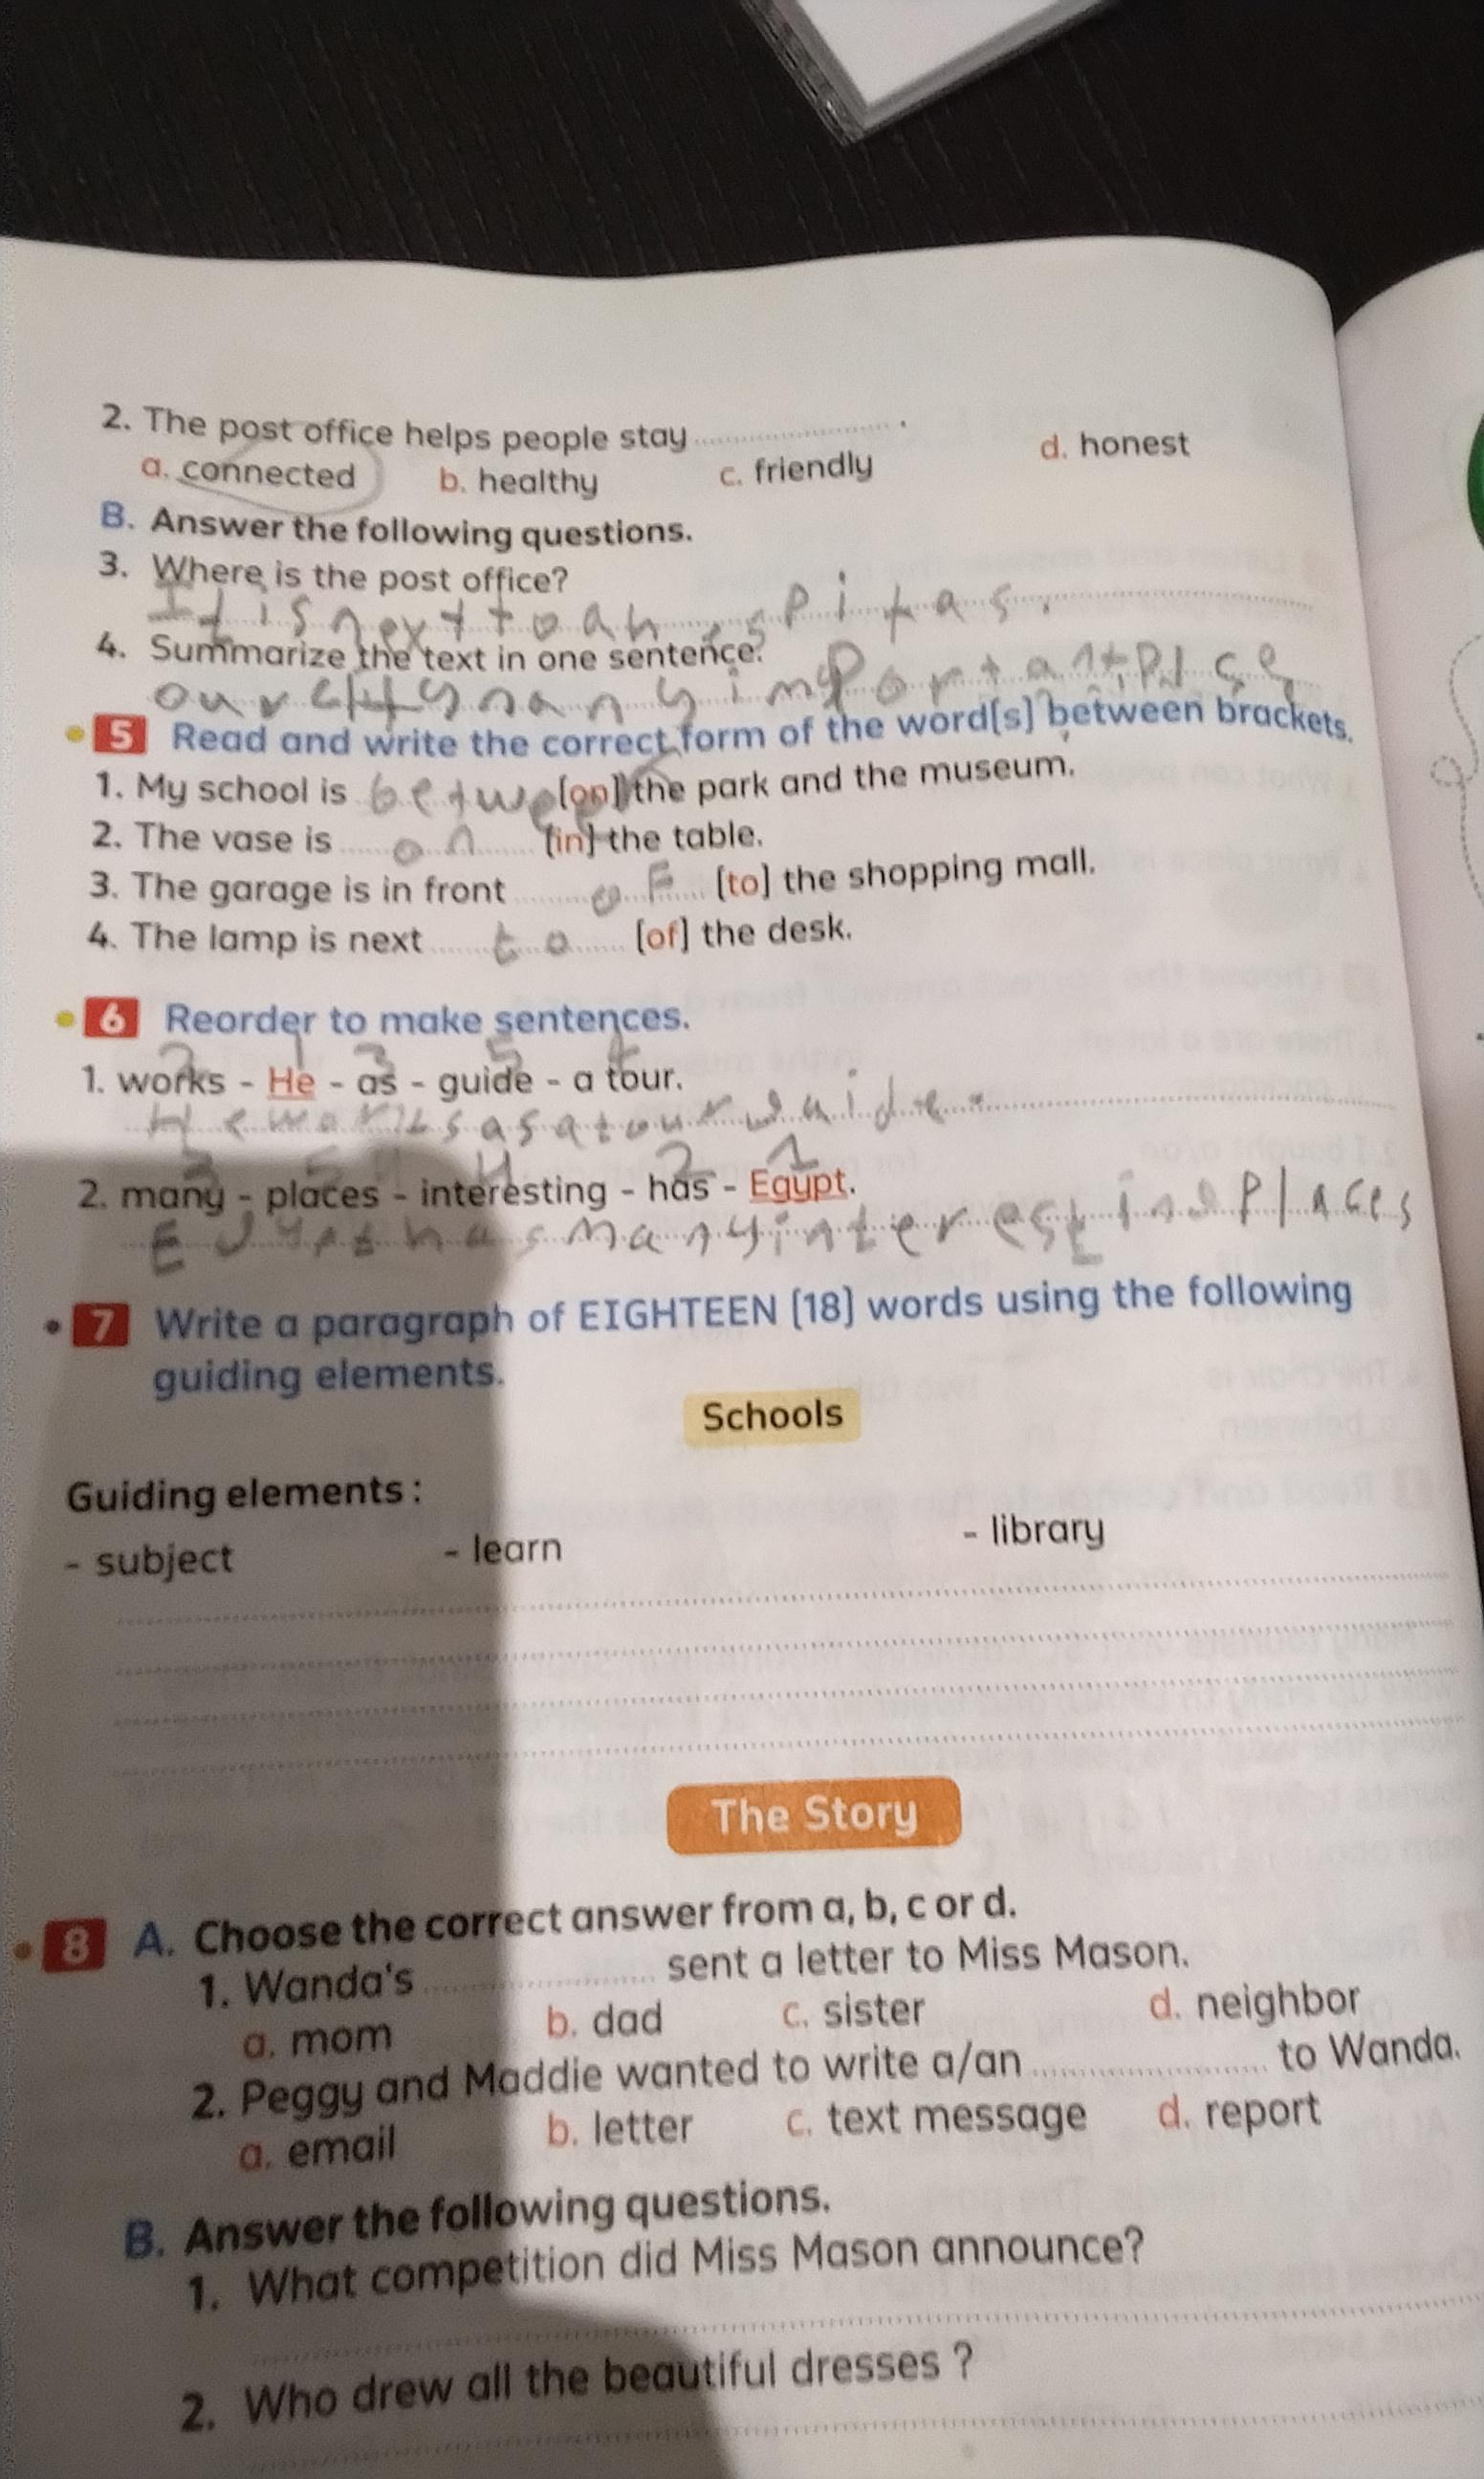 2. The post office helps people stay .................... .
a. connected b. healthy c. friendly d. honest
B. Answer the following questions.
3. Where is the post office?
It is next to a h
4. Summarize the text in one sentence.
our city many important place
5 Read and write the correct form of the word(s) between brackets.
1. My school is between [on] the park and the museum.
2. The vase is on [in] the table.
3. The garage is in front oF [to] the shopping mall.
4. The lamp is next to [of] the desk.
6 Reorder to make sentences.
2 1 3 5 4
1. works - He - as - guide - a tour.
He works as a tour guide.
3 5 4 2 1
2. many - places - interesting - has - Egypt.
Egypt has many interesting Places
7 Write a paragraph of EIGHTEEN (18) words using the following
guiding elements.
Schools
Guiding elements :
- subject - learn - library
The Story
8 A. Choose the correct answer from a, b, c or d.
1. Wanda's .................... sent a letter to Miss Mason.
a. mom b. dad c. sister d. neighbor
2. Peggy and Maddie wanted to write a/an .................... to Wanda.
a. email b. letter c. text message d. report
B. Answer the following questions.
1. What competition did Miss Mason announce?
2. Who drew all the beautiful dresses ?